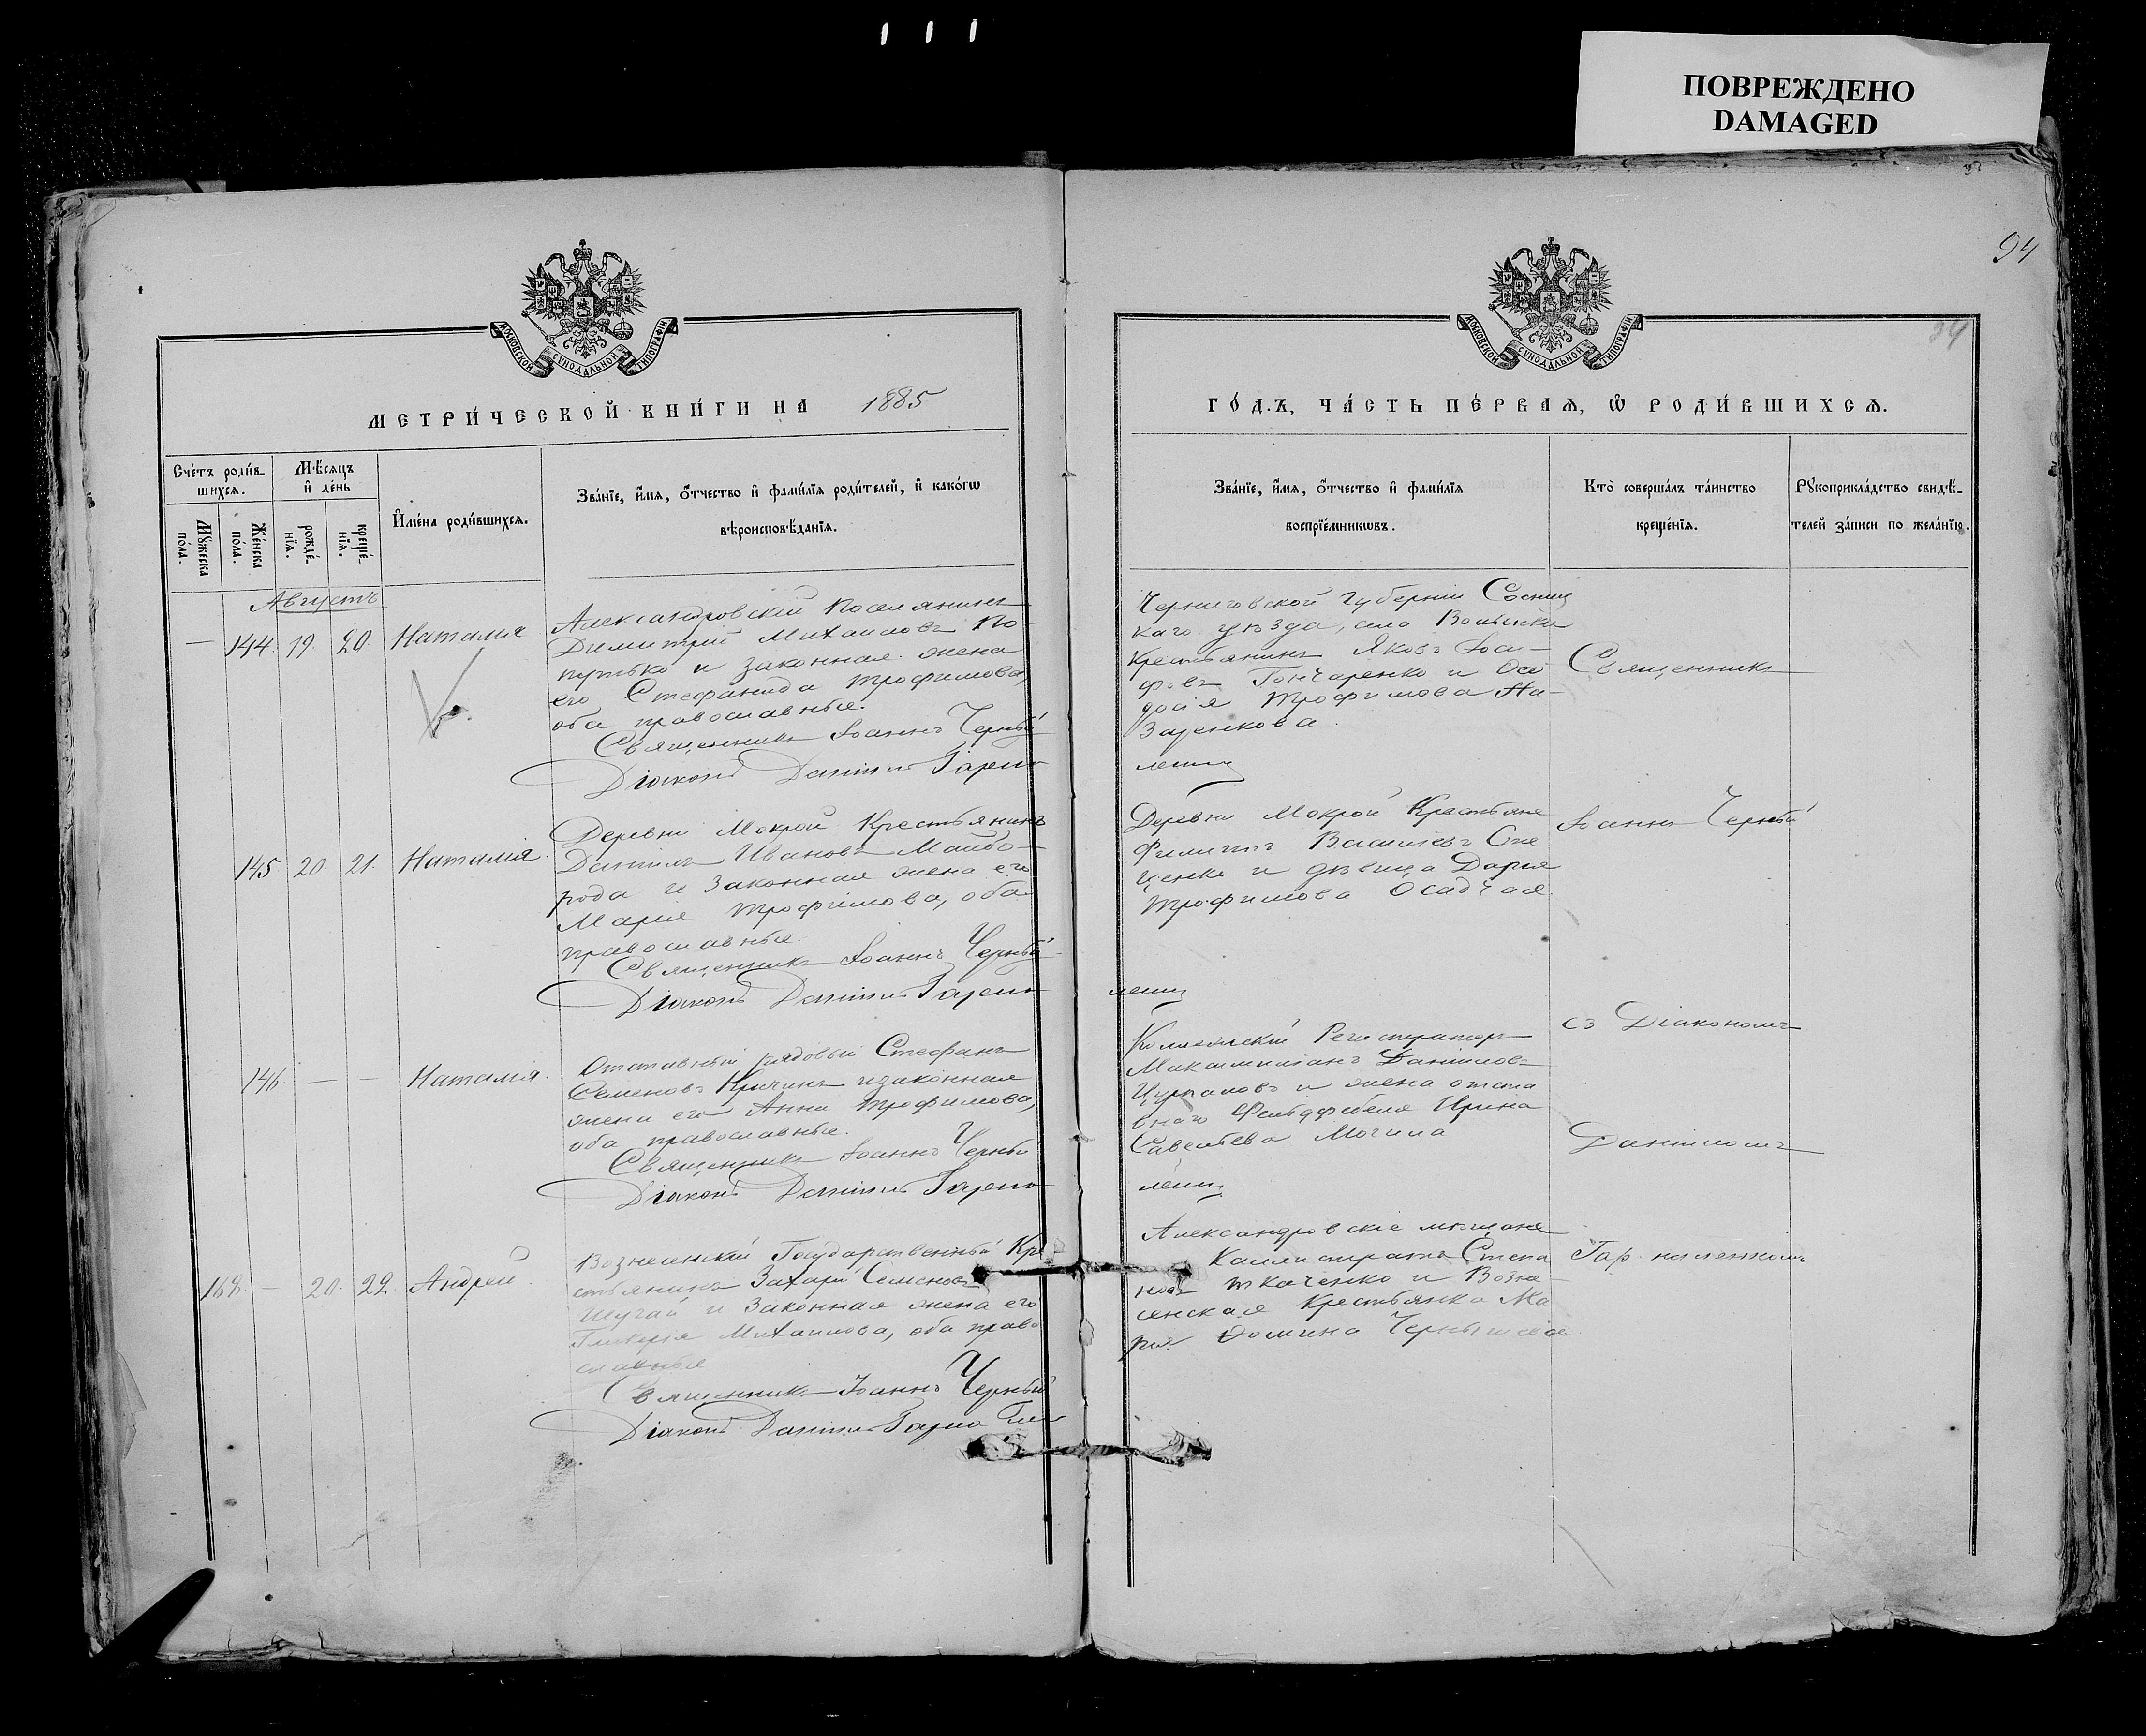 ПОВРЕЖДЕНО
DAMAGED
94
94
МОСКОВСКОЙ СѴНОДАЛЬНОЙ ТИПОГРАФІИ
МОСКОВСКОЙ СѴНОДАЛЬНОЙ ТИПОГРАФІИ
МЕТРИ́ЧЕСКОЙ КНИ́ГИ НА 1885
ГО́ДЪ, ЧА́СТЬ ПЕ́РВАѦ, Ѡ҆ РОДИ́ВШИХСѦ.
Сче́тъ роди́в-
шихсѧ.
Мꙋ́жеска по́ла.
Же́нска по́ла.
Мѣ́сѧцъ и҆ де́нь
рожде́-нїѧ.
креще́-нїѧ.
И҆мена̀ роди́вшихсѧ.
Зва́нїе, и҆́мѧ, ѻ҆́тчество и҆ фами́лїѧ роди́телей, и҆ како́гѡ
вѣроисповѣ́данїѧ.
Зва́нїе, и҆́мѧ, ѻ҆́тчество и҆ фами́лїѧ
воспрїе́мникѡвъ.
Кто̀ соверша́лъ та́инство
креще́нїѧ.
Рꙋкоприкла́дство свидѣ́-
телей за́писи по жела́нїю.
Августъ
— 144. 19. 20. Наталія
Александровскій поселянинъ
Димитрій Михаиловъ По-
путько и законная жена
его Стефанида Трофимова,
оба православные.
Священникъ Іоаннъ Черный
Діаконъ Даніилъ Гарпо-
Черниговской губерніи Сосниц
каго уѣзда, села Волынки
Крестьянинъ Яковъ Іоси-
фовъ Гончаренко и Ѳео
досія Трофимова На-
заренкова.
ленц
Священникъ
145 20. 21. Наталія.
Деревни Мокрой Крестьянинъ
Даніилъ Ивановъ Майбо-
рода и законная жена его
Марія Трофимова, оба
православные.
Священникъ Іоаннъ Черный
Діаконъ Даніилъ Гарпо-
Деревни Мокрой Крестьяне
Филиппъ Васильевъ Сте
ценко и дѣвица Дарья
Трофимова Осадчая.
ленц
Іоаннъ Черный
146. — — Наталія.
Отставный рядовый Стефанъ
Семеновъ Кричинъ и законная
жена его Анна Трофимова,
оба православные.
Священникъ Іоаннъ Черный
Діаконъ Даніилъ Гарпо-
Коллежскій Регистраторъ
Максимиліанъ Даніиловъ
Цупаловъ и жена отста
внаго Фельдфебеля Ирина
Савельева Могила
ленц
съ Діакономъ
Даніиломъ
168. — 20. 22. Андрей.
Вознесенскій Государственный Кре
стьянинъ Захарій Семеновъ
Шугай и законная жена его
Гликерія Михаилова, оба право
славные
Священникъ Іоаннъ Черный
Діаконъ Даніилъ
Александровскіе мѣщане
Каллистратъ Степа
новъ Ткаченко и Возне-
сенская Крестьянка Ма
рія Фомина Чернышева